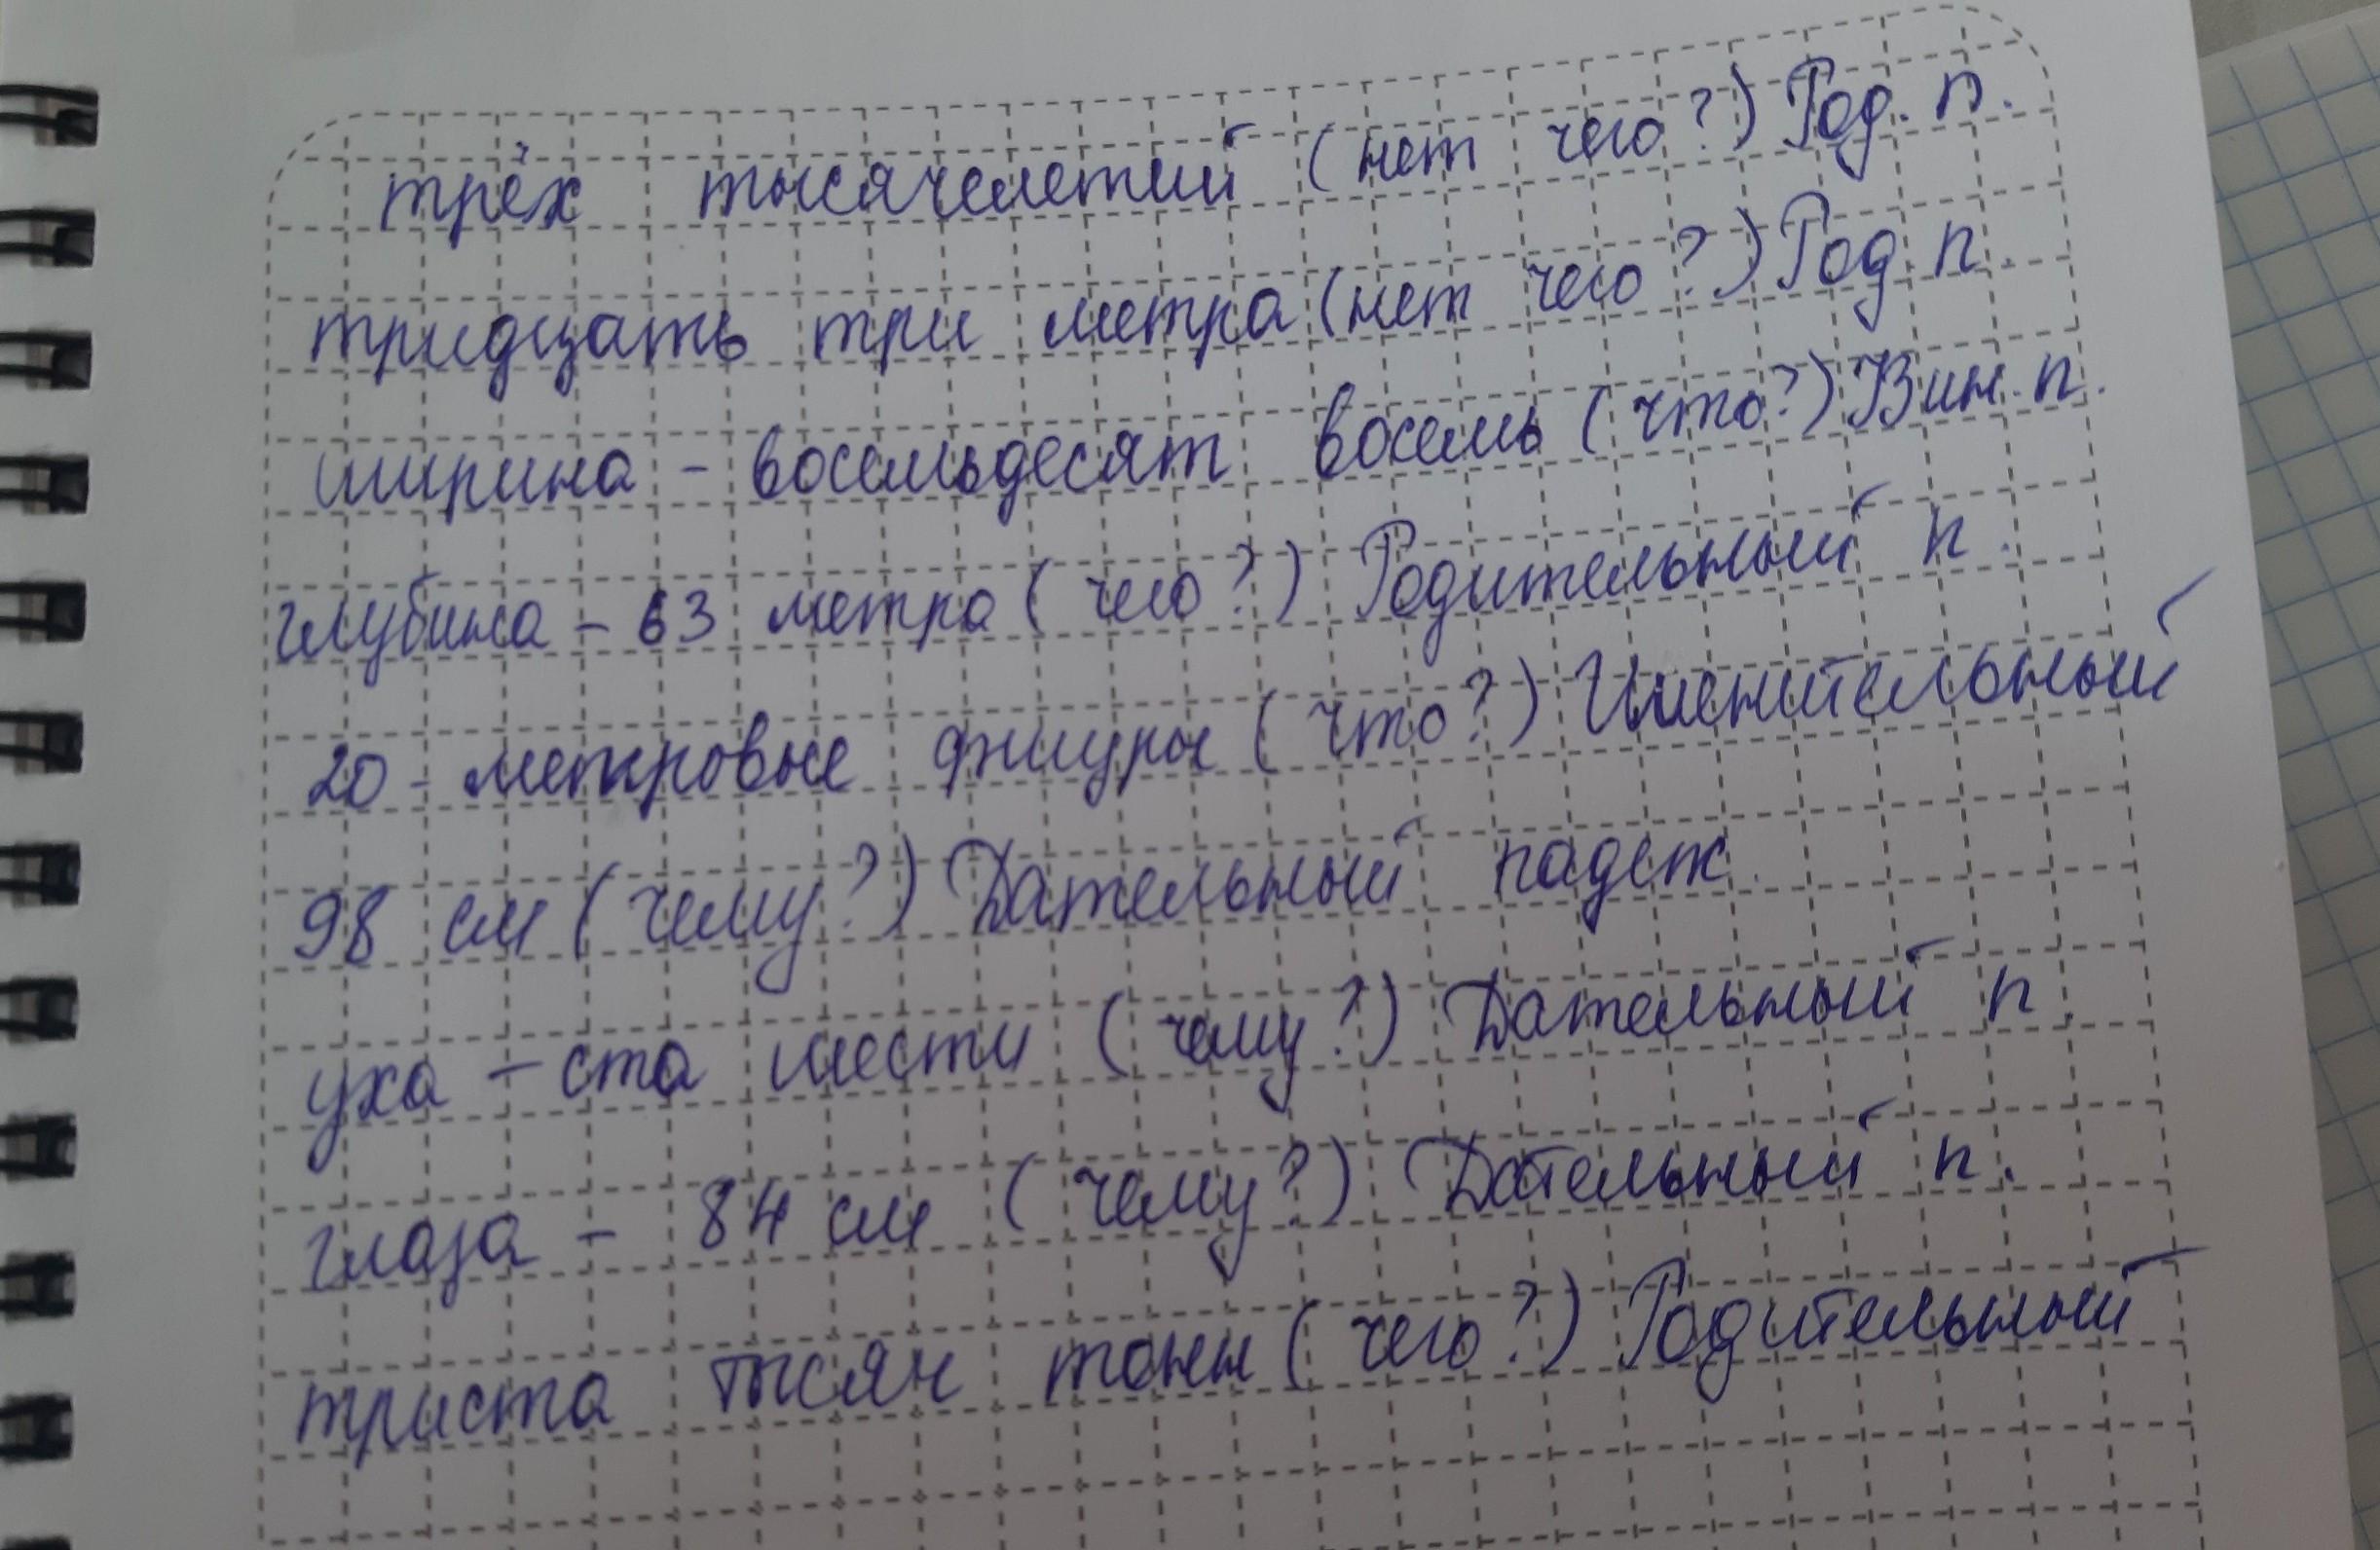 трёх тысячелетий (нет чего?) Род. п.
тридцать три метра (нет чего?) Род. п.
ширина - восемьдесят восемь (что?) Вин. п.
глубина - 63 метра (чего?) Родительный п.
20 - метровые фигуры (что?) Именительный
98 см (чему?) Дательный падеж.
уха - ста шести (чему?) Дательный п.
глаза - 84 см (чему?) Дательный п.
триста тысяч тонн (чего?) Родительный